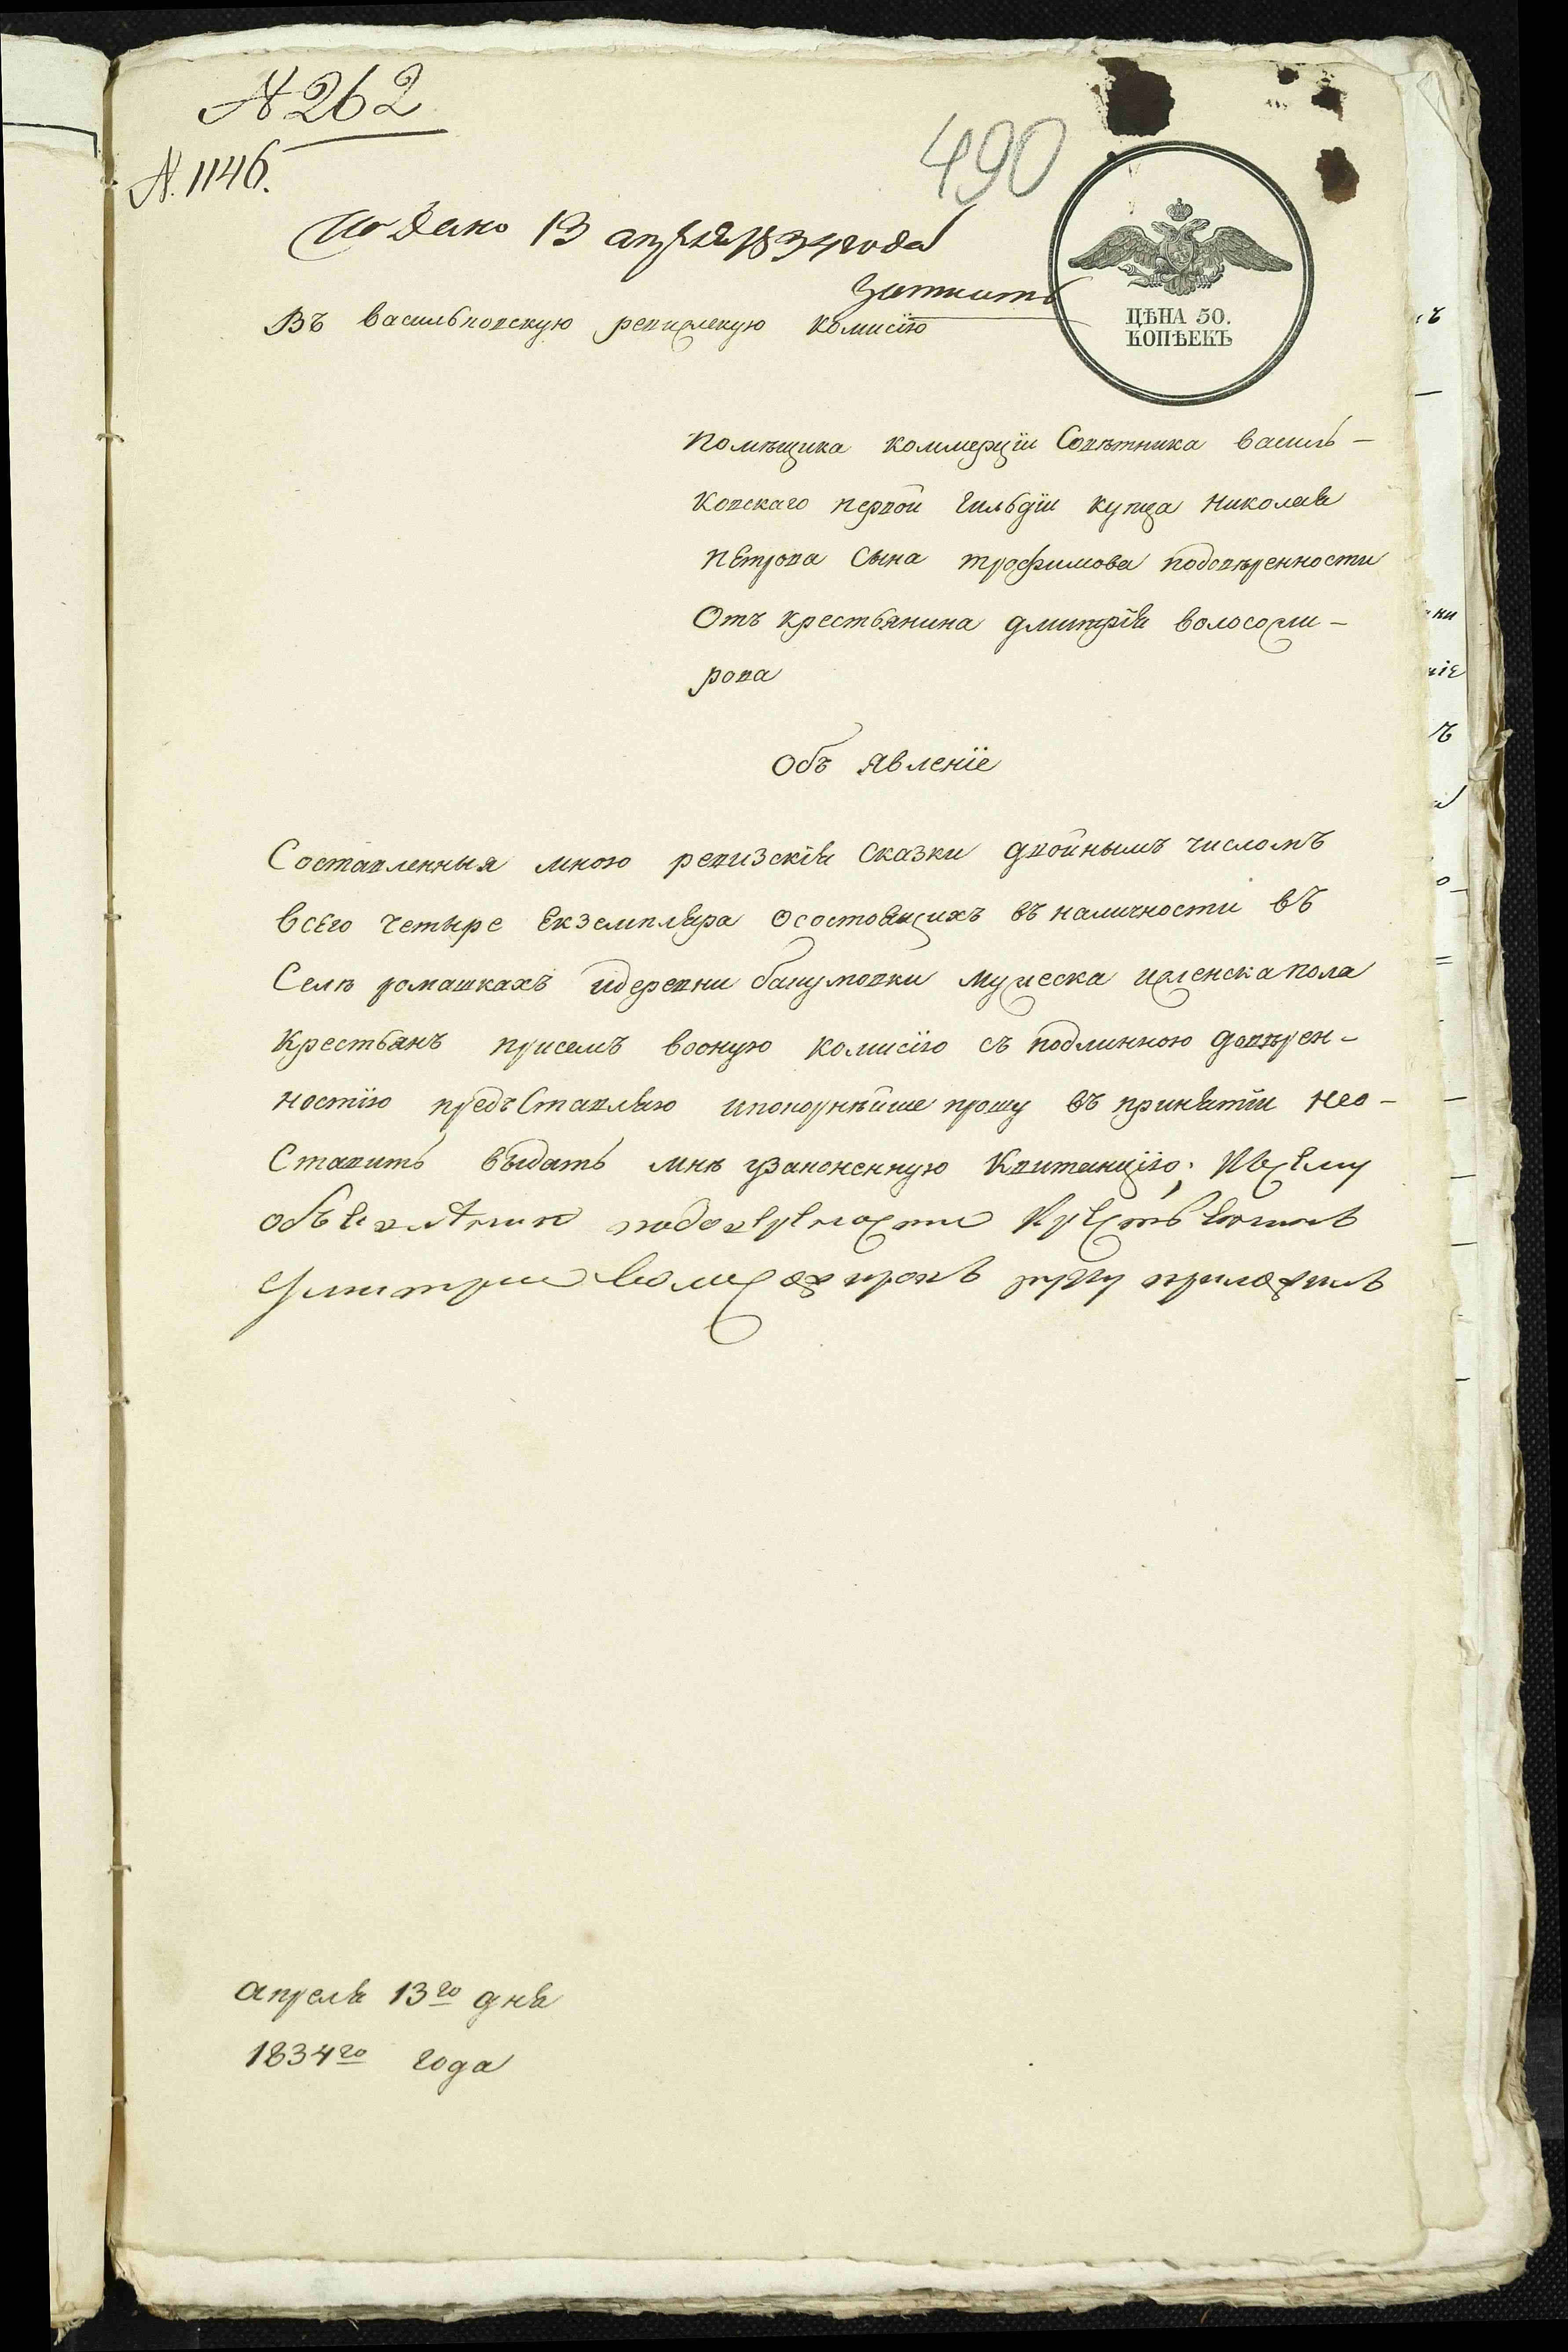 N 262
N. 1146.
490
Подано 13 апреля 1834 года
ЦѢНА 50.
КОПѢЕКЪ
Въ васильковскую ревизскую комисїю
помѣщика коммерцїи Совѣтника василь-
ковскаго первой гильдїи купца николая
петрова Сына трофимова подовѣренности
Отъ крестьянина дмитрїя
рова
Объ явленїе
Составленныя мною ревизскїя Сказки двойнымъ числомъ
всего четыре екземпляра осостоящихъ въ наличности въ
Селѣ ромашкахъ идеревни мужеска иженска пола
крестьянъ присемъ вооную комисїю съ подлинною довѣрен-
ностїю предъставляю ипокорнѣйше прошу въ принятїи нео-
Ставить выдать мнѣ узаконенную квитанцїю; Ксему
объявлению подоверености крестьянинъ
дмитрий руку приложилъ
апреля 13го дня
1834го года